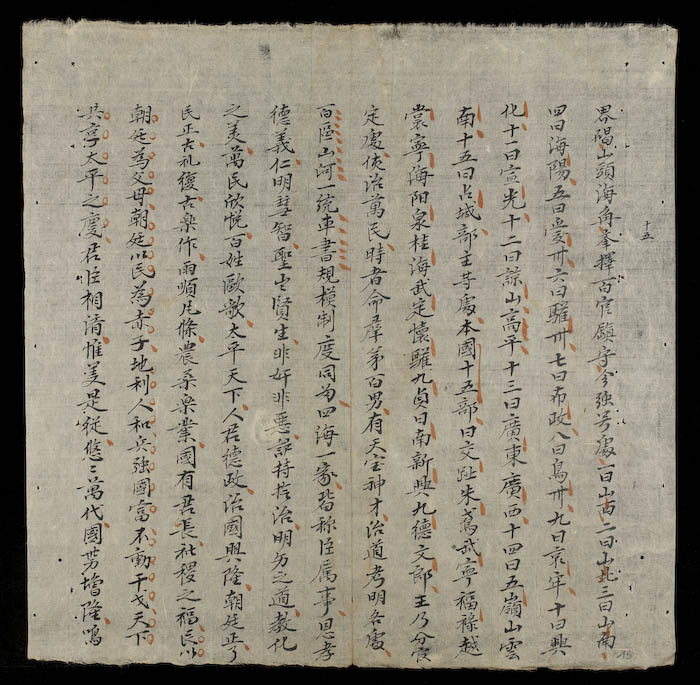 十五
界陽山頭海角奎擇百官鎮守今強号處一曰山西二曰山北三曰山南
四曰海陽五曰愛州六曰驩州七曰布政八曰烏州九曰哀牢十曰興
化十一曰宣光十二曰諒山高平十三曰廣東廣西十四曰五嶺山雲
南十五曰占城部主等處本國十五部曰交趾朱鳶武寧福祿越
裳寧海阳泉桂海武定懷驩九貞日南新興九德文郎王乃分官
定處使治萬民時者命羣弟百男有天宝神才治道考明各處
百區山河一統車書規模制度同为四海一家皆称臣属事恩孝
德義仁明彗智聖生賢生非奸非惡詐持於治明方之道教化
之美萬民欣悅百姓歐歌太平天下人君德政治國興隆朝廷正了
民正古礼復古樂作雨順凡條農桑樂業國有君長社稷之福民以
朝廷為父母朝廷以民為赤子地利人和兵強國富不動干戈天下
共享太平之慶君臣相清惟美是從悠〻萬代國勞增隆鳴
15